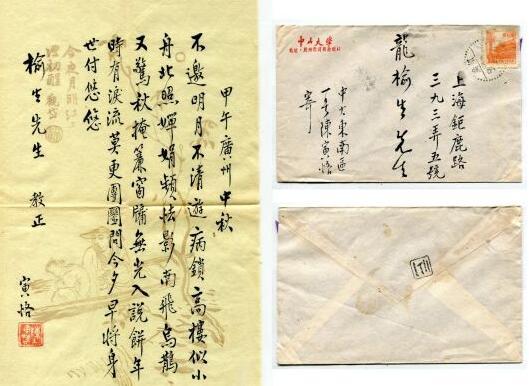 甲午廣州中秋
不邀明月不清遊病鎖高樓似小
舟北照嬋娟頻怯影南飛烏鵲
又驚秋掩簾窗牖無光入說餅年
時有淚流莫更團圞問今夕早將身
世付悠悠
榆生先生 教正
寅恪
今夜月明江
中山大學
上海鉅鹿路
三九三弄五號
龍榆生先生
中大東南區
一号陳寅恪
寄